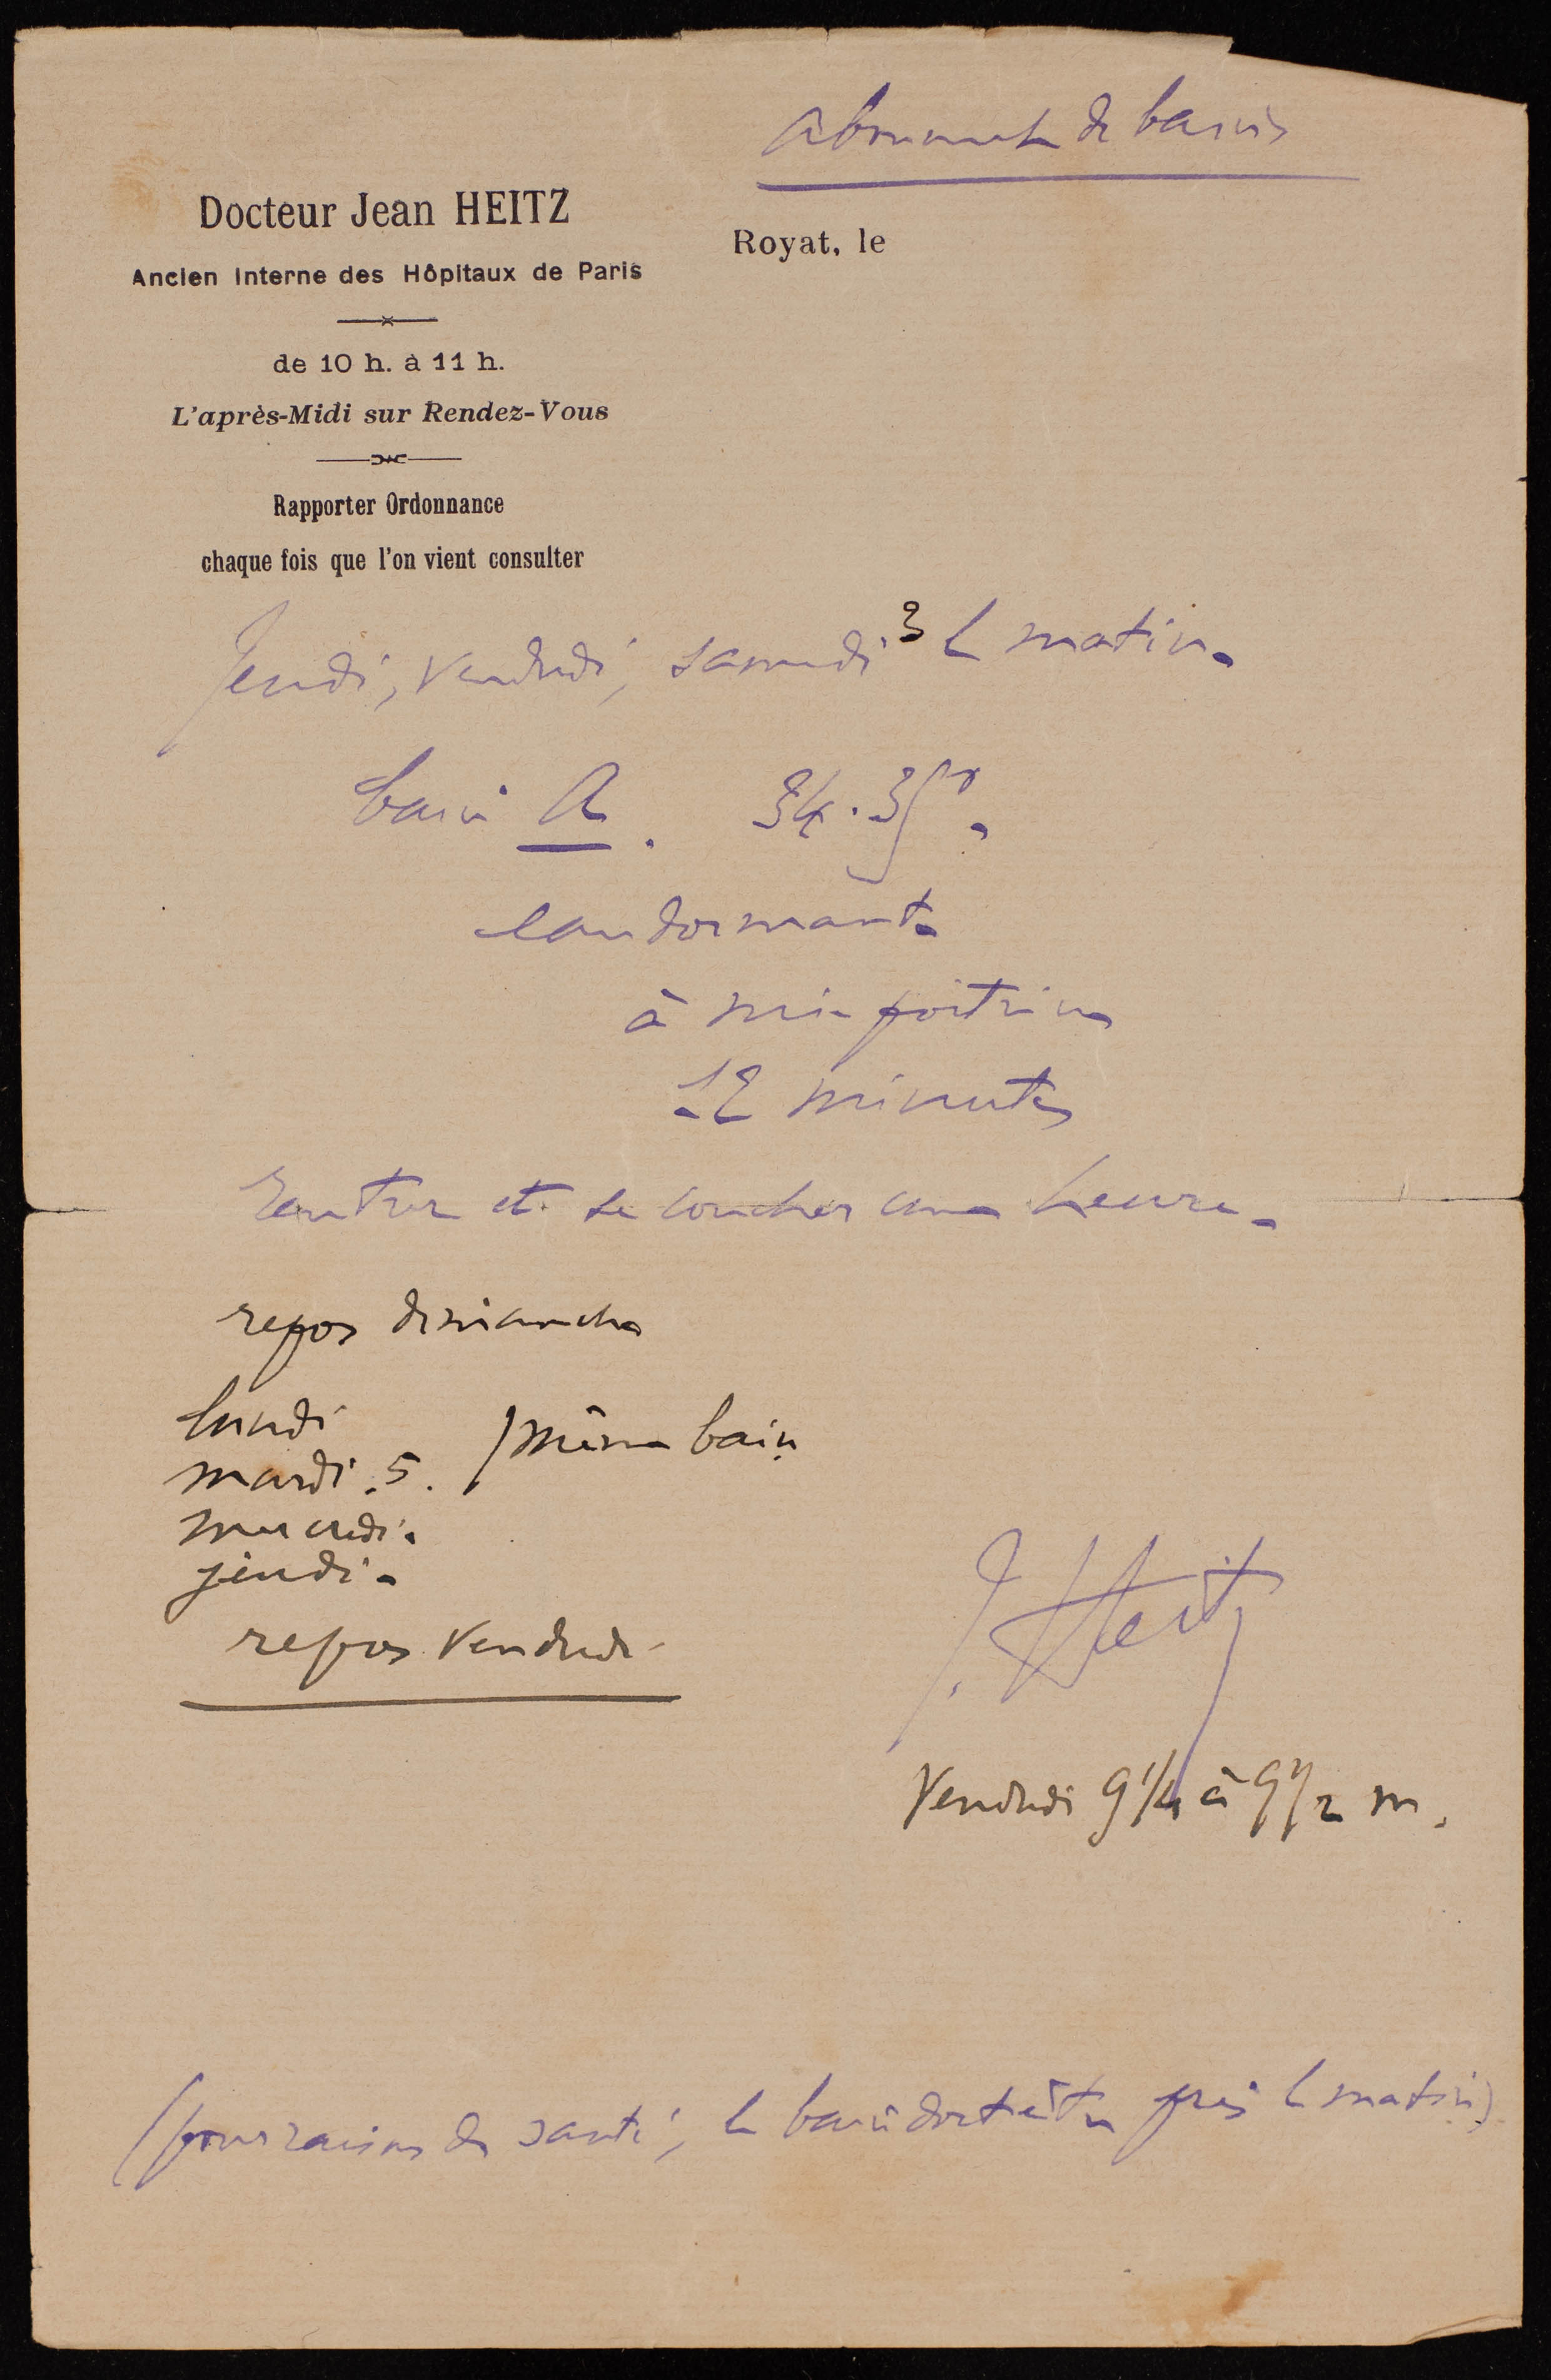 abonnement de bains
Docteur Jean HEITZ
Ancien Interne des Hôpitaux de Paris
Royat, le
de 10 h. à 11 h.
L'après-Midi sur Rendez-Vous
Rapporter Ordonnance
chaque fois que l'on vient consulter
Jeudi, Vendredi, samedi 3 le matin.
bain A. 34.35°.
eau dormante
à mi-poitrine
12 minutes
rentrer et se coucher une heure.
repos dimanche
lundi
mardi .5. / même bain
mercredi.
jeudi.
repos Vendredi
J. Heitz
Vendredi 9 1/4 à 9 1/2 m.
(pour raison de santé, le bain doit être pris le matin)